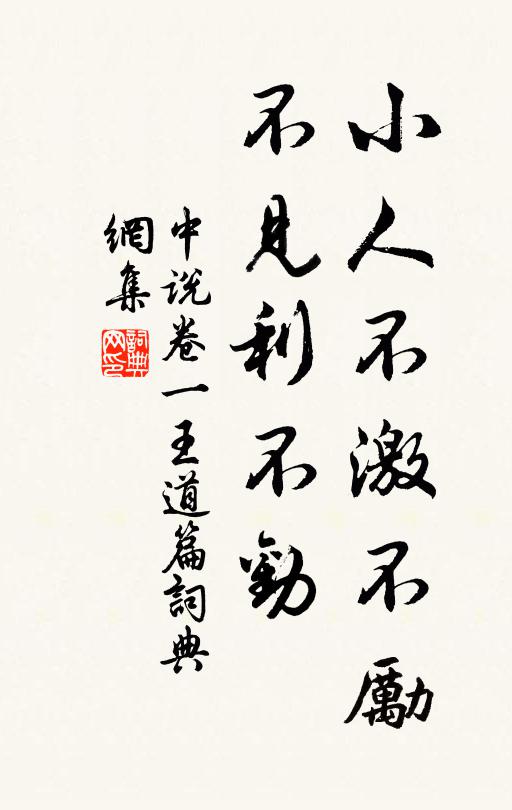 小人不激不勵
不見利不勸
中说卷一王道篇詞典
網集
詞典
网印